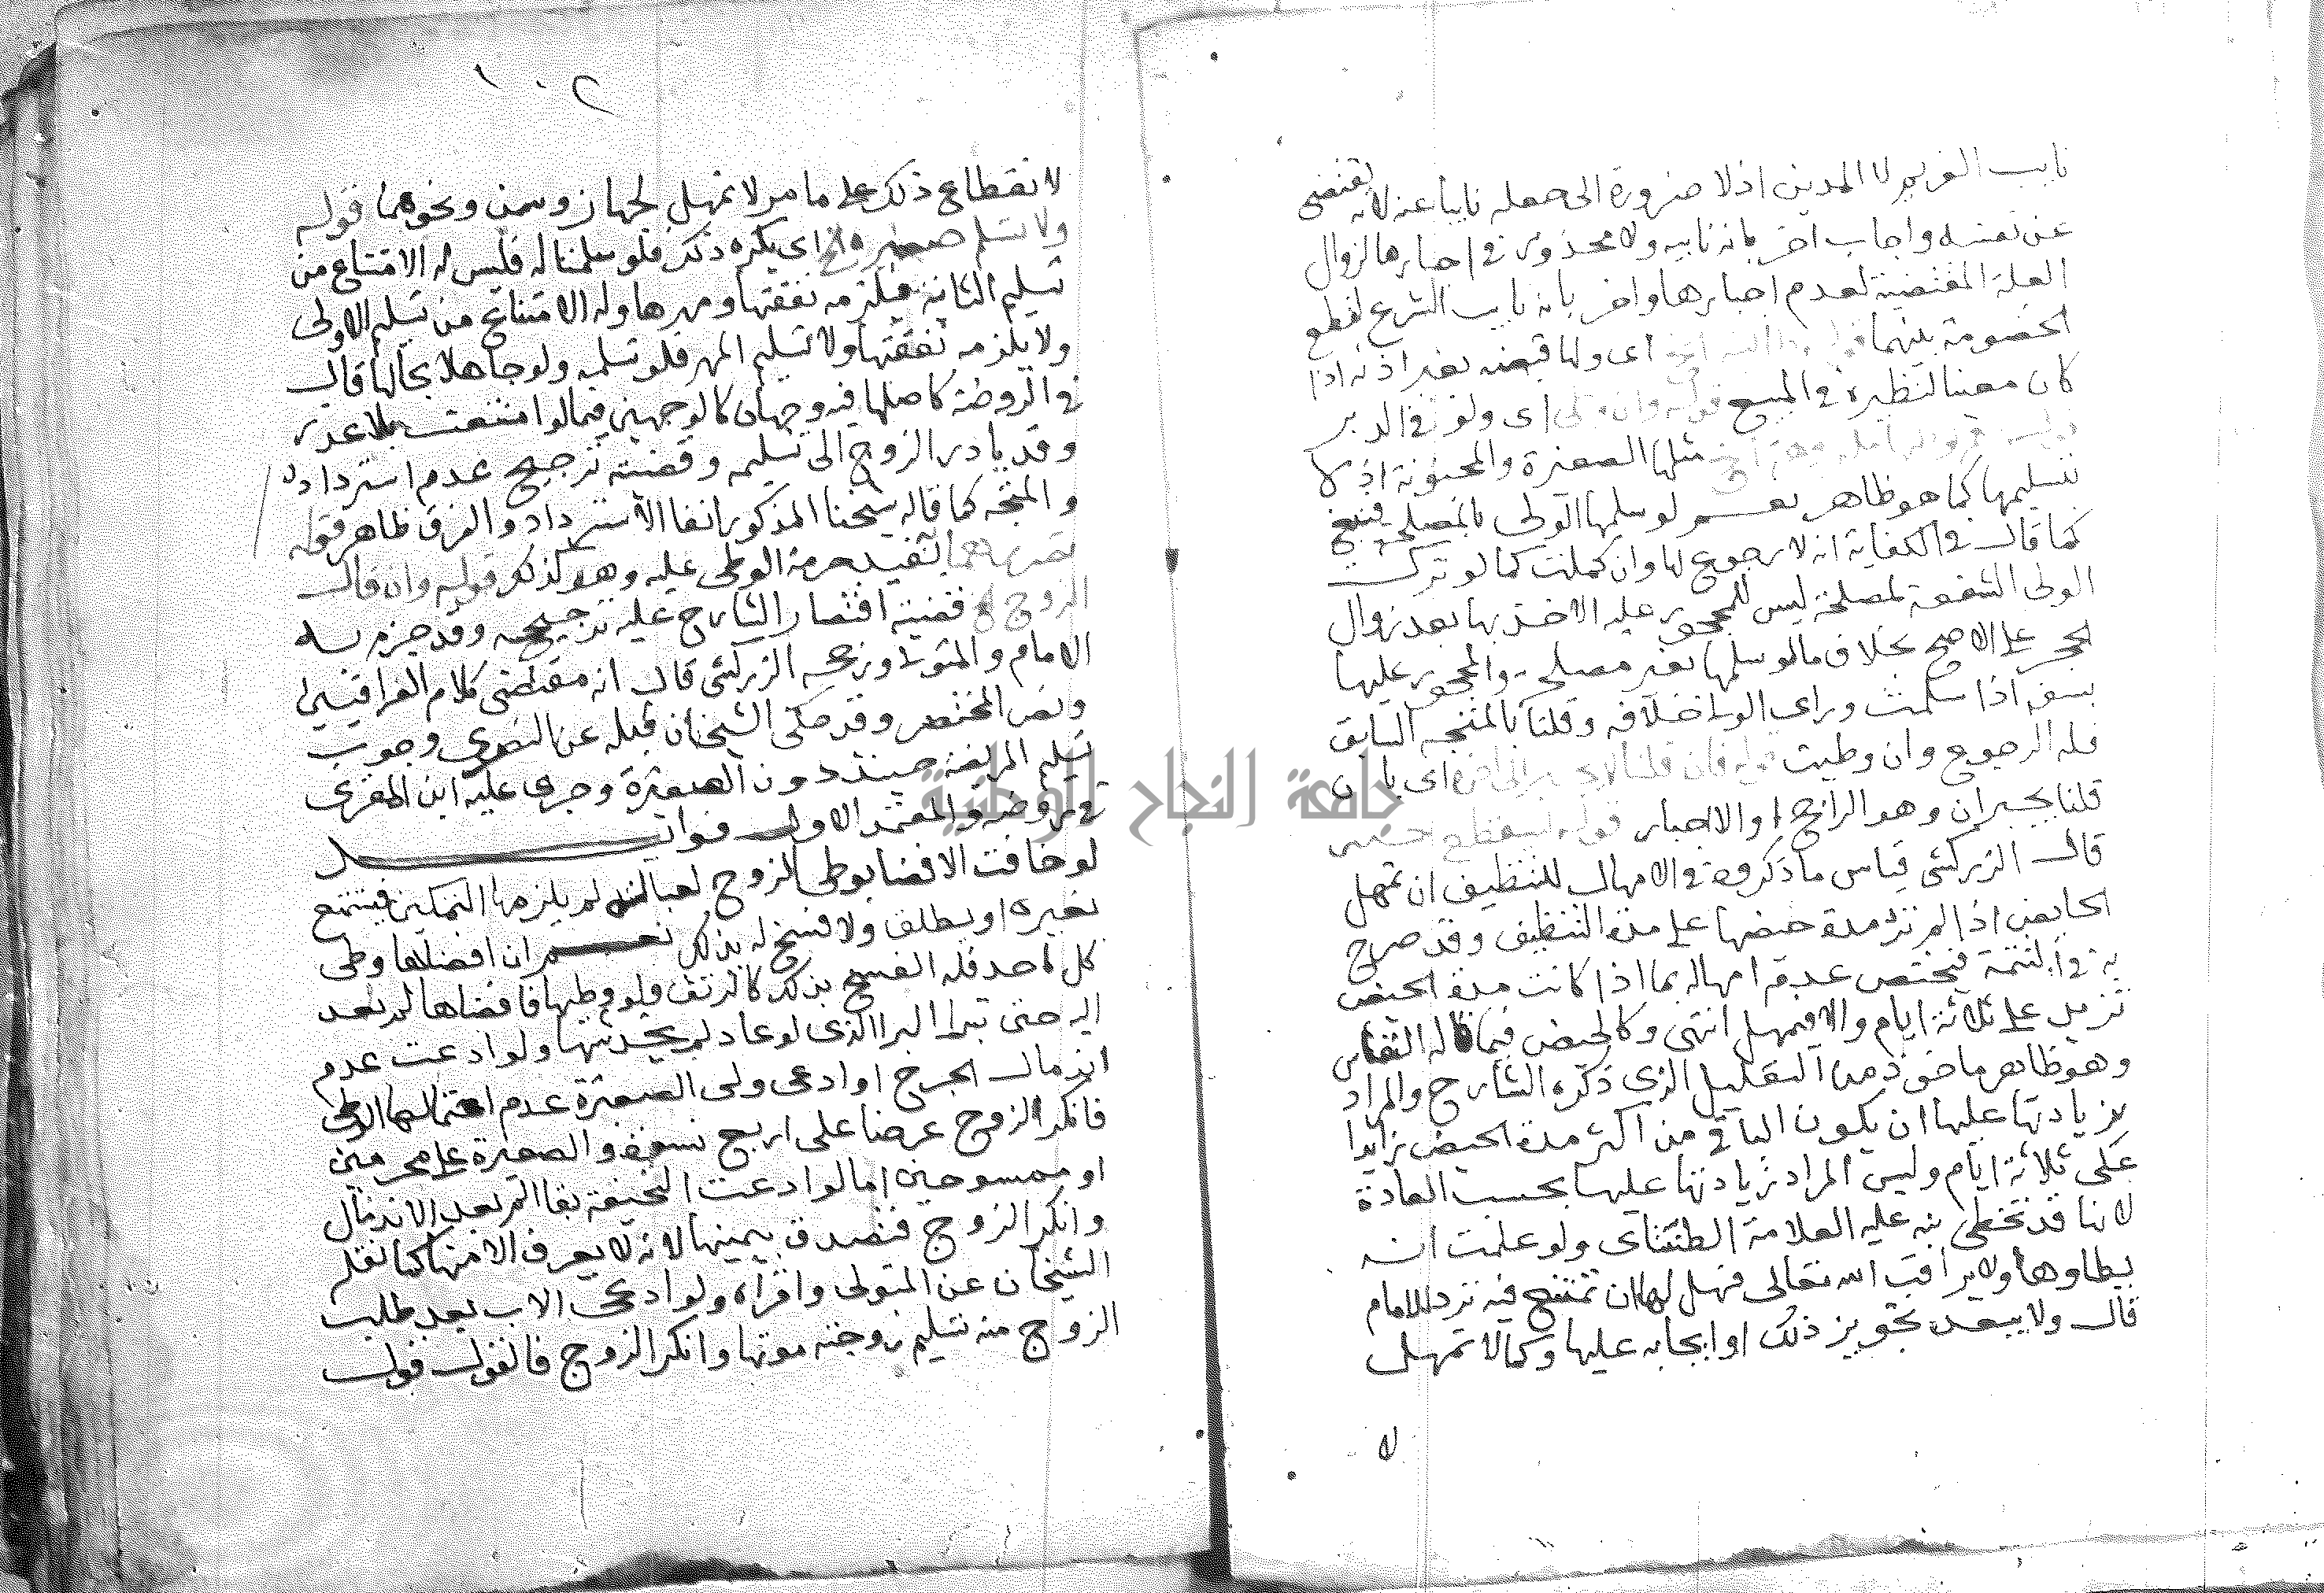 نايب الغريم لا المدين اذ لا ضرورة الى جعله نايبا عنه لانه يقتضى
عن نفسه واجاب اخر بانه نايبه ولا محذور في اجبارها لزوال
العلة المقتضية لعدم اجبارها واخر بانه نايب الشرع لقطع
الخصومة بينهما اى ولها قبضه بغير اذنه اذا
كان معينا لنظيره في المبيع قوله وان وطى اى ولو في الدبر
مثلها الصغيرة والمجنونة اذ لا
بتسليمها كما هو ظاهر نعم لو سلمها الولى بالمصلحة فينبغى
كما قال في الكفاية انه لا رجوع لها وان كملت كما لو ترك
الولى الشفعة لمصلحة ليس للمحجور عليه الاخذ بها بعد زوال
الحجر على الاصح بخلاف ما لو سلمها بغير مصلحة والمحجور عليها
بسفه اذا سلمت وراى الولى خلافه وقلنا بالمتجه السابق
فله الرجوع وان وطيت قوله فان قلنا اى بان
قلنا يجبران وهو الراجح او لا اجبار قوله
قال الزركشى قياس ما ذكروه في الامهال للتنظيف ان تمهل
الحايض اذا لم تزد مدة حيضها على مدة التنظيف وقد صرح
به في التتمة فيختص عدم امهاله بما اذا كانت مدة الحيض
تزيد على ثلاثة ايام والا فيمهل انتهى وكالحيض فيما قاله النفاس
وهو ظاهر ماخوذ من التعليل الذي ذكره الشارح والمراد
بزيادتها عليها ان يكون الباقي من اكثر مدة الحيض زايدا
على ثلاثة ايام وليس المراد زيادتها عليها بحسب العادة
لانها قد تخطى نبه عليه العلامة الطنتداى ولو علمت انه
يطاوها ولا يراقب الله تعالى فهل لها ان تمتنع فيه تردد للامام
قال ولا يبعد تجويز ذلك او ايجابه عليها وكما لا تمهل
لا
١٠٢
لانقطاع ذلك على ما مر لا تمهل لجهاز وسمن ونحوهما قوله
ولا تسلم صغيرة الخ اى يكره ذلك فلو سلمنا له فليس له الامتناع من
تسليم الثانية فيلزمه نفقتها ومهرها وله الامتناع من تسليم الاولى
ولا يلزمه نفقتها ولا تسليم المهر فلو تسلمه ولو جاهلا بحالها قال
في الروضة كاصلها فيه وجهان كالوجهين فيما لو امتنعت بلا عذر
وقد بادر الزوج الى تسليمه وقضيته ترجيح عدم استرداده
والمتجه كما قاله شيخنا المذكور انفا الاسترداد والفرق ظاهر قوله
يضرهما يفيد حرمة الوطى عليه وهو كذلك قوله وان قال
الزوج الخ قضية اقتصار الشارح عليه ترجيحه وقد جزم به
الامام والمتولى ورجحه الزركشى قال انه مقتضى كلام العراقيين
ونص المختصر وقد حكى الشيخان قبله عن البغوى وجوب
تسليم المريضة حينئذ دون الصغيرة وجرى عليه ابن المقرى
في روضه والمعتمد الاول فوايد
لو خافت الافضا بوطى الزوج لعبالته لم يلزمها التمكين فيتمتع
بغيره او يطلق ولا فسخ له بذلك نعم ان افضاها وطى
كل احد فله الفسخ بذلك كالرتق فلو وطيها فافضاها لم يعد
اليه حتى تبرا البرا الذى لو عاد لم يخدشها ولو ادعت عدم
اندمال الجرح او ادعى ولى الصغيرة عدم احتمالها الوطى
فانكر الزوج عرضنا على اربع نسوة والصغيرة على محرمين
او ممسوحين اما لو ادعت النحيفة بقا الم بعد الاندمال
وانكر الزوج فتصدق بيمينها لانه لا يعرف الا منها كما نقله
الشيخان عن المتولى واقراه ولو ادعى الاب بعد طلب
الزوج منه تسليم زوجته موتها وانكر الزوج فالقول قول
جامعة النجاح الوطنية